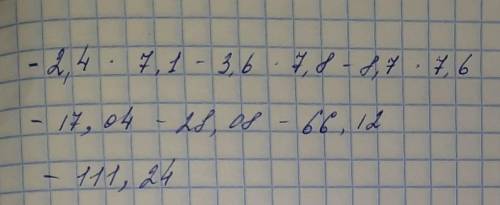 - 2,4 · 7,1 - 3,6 · 7,8 - 8,7 · 7,6
- 17,04 - 28,08 - 66,12
- 111,24